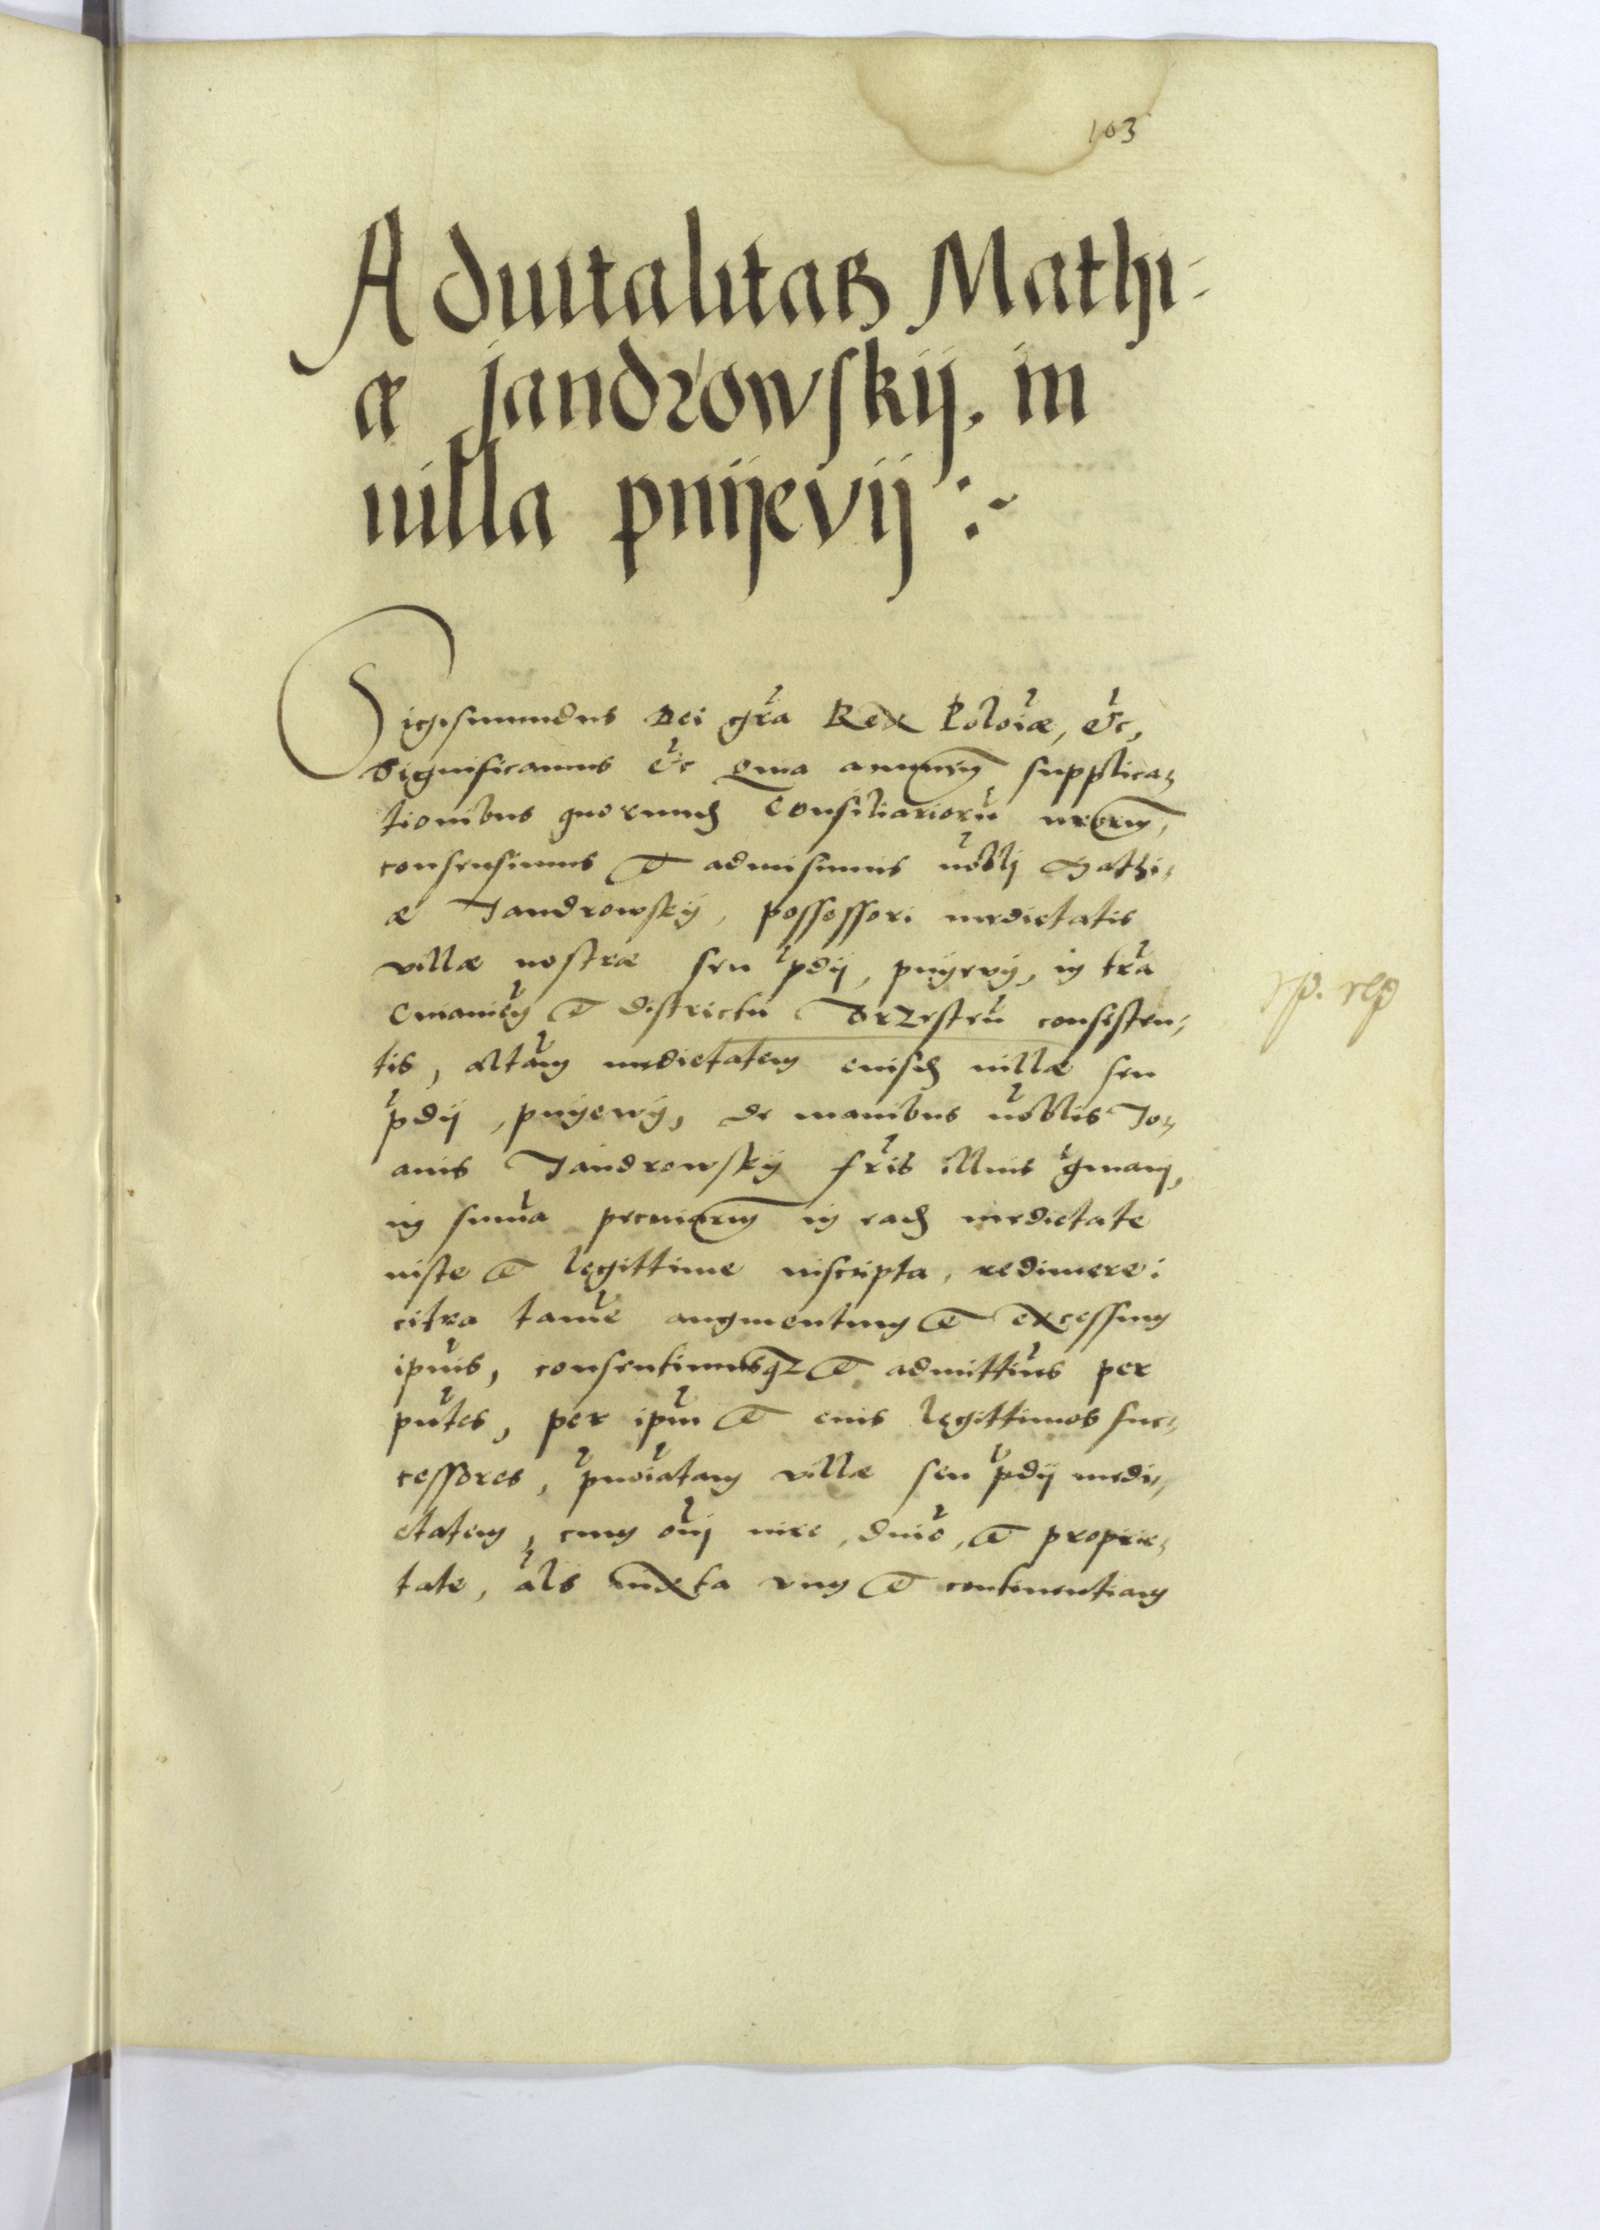 103
Aduitalitas Mathi-
æ Jandrowskij, in
uilla pnijevij :~
Sigismundus Dei gra Rex Poloiæ, etc,
Significamus etc Qma supplica-
tionibus quorund Consiliarioru nrorum,
consensimus et admisimus nobli Mathi-
æ Jandrowskij, possessori medietatis
villæ nostræ seu pdij, pnijevij, in tra
Cuiavien et districtu Brzesten consisten-
tis, altam medietatem euisd uillæ seu
pdij, pnijewij, de manibus noblis Jo-
anis Jandrowskij fris illius gmani,
in suma pecuniarum in ead medietate
iuste et legittime inscripta, redimere:
citra tame augmentum et excessum
ipius, consentimusqz et admittius per
pntes, per ipm et euis legittimos suc-
cessores, pnoiatam villæ seu pdij medi-
etatem, cum oni iure, dnio, et proprie-
tate, als iuxta vim et continentiam